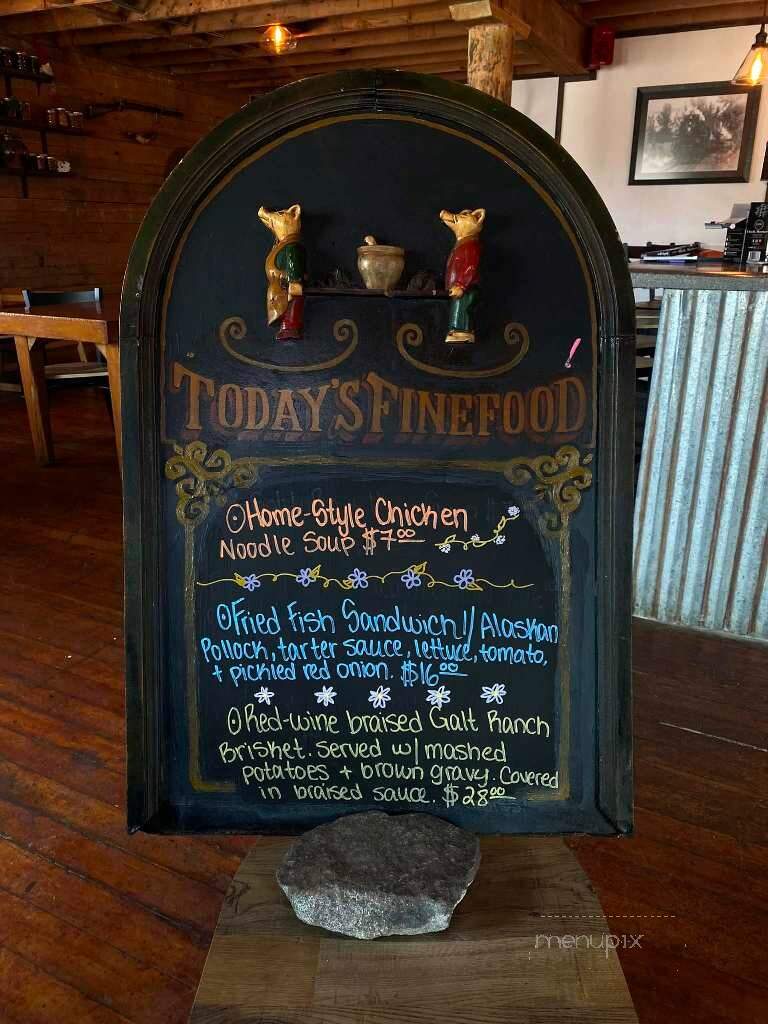 TODAY'S FINEFOOD
Home-Style Chicken
Noodle Soup $7.00
Fried Fish Sandwich // Alaskan
Pollock, tarter sauce, lettuce, tomato,
+ pickled red onion. $16.00
Red-wine braised Galt Ranch
Brisket. Served w/ mashed
potatoes + brown gravy. Covered
in braised sauce. $28.00
menupix